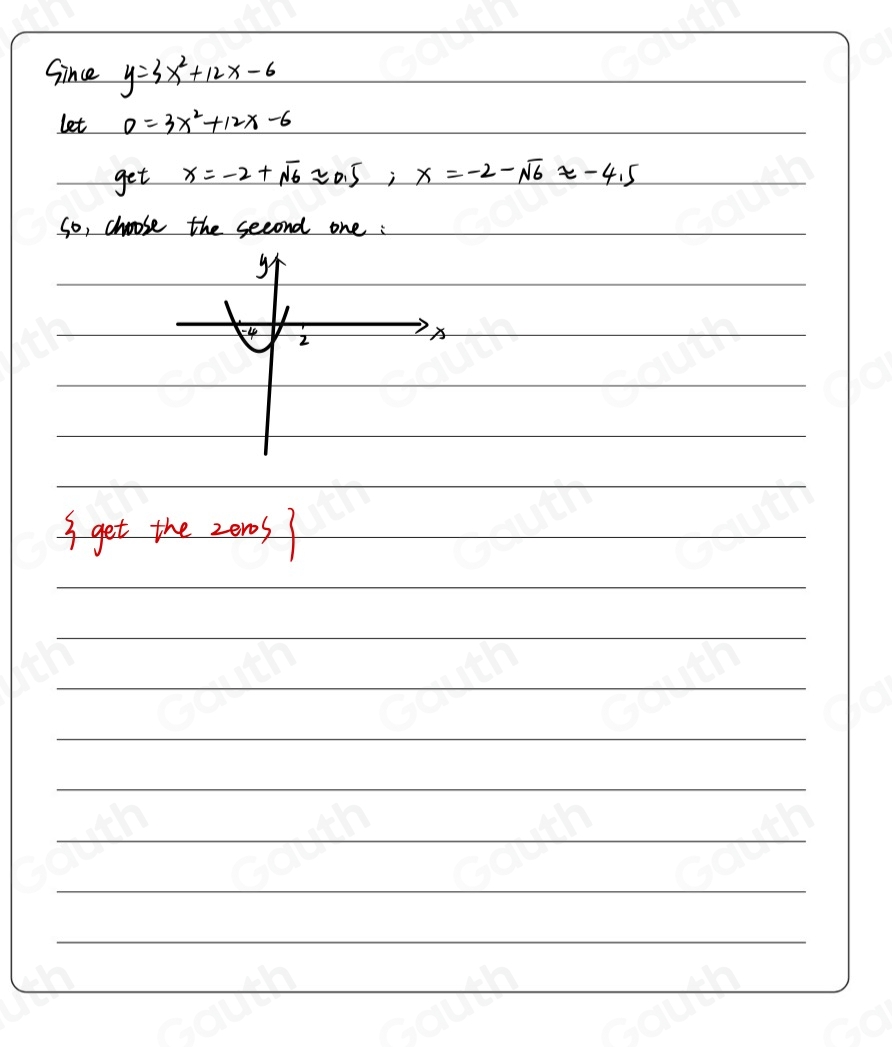 Since y=3x²+12x-6
let 0=3x²+12x-6
get x=-2+√6≈0.5 ; x=-2-√6≈-4.5
So, choose the second one:
y
-4 2 x
{get the zeros}
Gauth